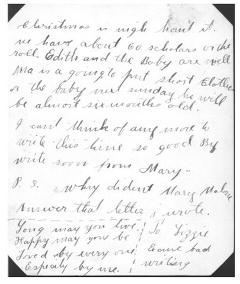 Christmas is nigh hant it.
we have about 60 scholars on the
roll. Edith and the baby are well
Ma is a going to put short Clothes
on the baby next sunday he will
be almost six months old.
I cant think of any more to
write this time so good By
write soon from Mary.
P. S. Why dident Mary
Answer that letter i wrote.
Long may you live
Happy may you be
Loved by every one
Especialy by me.
To Lizzie
Excuse bad
writing